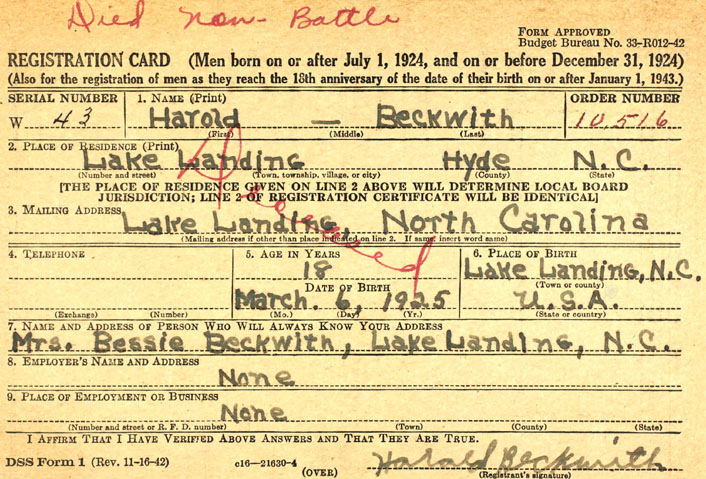 Died Non-Battle
FORM APPROVED
Budget Bureau No. 33-R012-42
REGISTRATION CARD (Men born on or after July 1, 1924, and on or before December 31, 1924)
(Also for the registration of men as they reach the 18th anniversary of the date of their birth on or after January 1, 1943.)
SERIAL NUMBER 1. NAME (Print) ORDER NUMBER
W 43 Harold — Beckwith 10516
(First) (Middle) (Last)
2. PLACE OF RESIDENCE (Print)
Lake Landing Hyde N.C.
(Number and street) (Town, township, village, or city) (County) (State)
Deceased
[THE PLACE OF RESIDENCE GIVEN ON LINE 2 ABOVE WILL DETERMINE LOCAL BOARD
JURISDICTION; LINE 2 OF REGISTRATION CERTIFICATE WILL BE IDENTICAL]
3. MAILING ADDRESS
Lake Landing, North Carolina
(Mailing address if other than place indicated on line 2. If same insert word same)
4. TELEPHONE 5. AGE IN YEARS 6. PLACE OF BIRTH
18 Lake Landing, N.C.
DATE OF BIRTH (Town or county)
March. 6, 1925 U.S.A.
(Exchange) (Number) (Mo.) (Day) (Yr.) (State or country)
7. NAME AND ADDRESS OF PERSON WHO WILL ALWAYS KNOW YOUR ADDRESS
Mrs. Bessie Beckwith, Lake Landing, N.C.
8. EMPLOYER'S NAME AND ADDRESS
None
9. PLACE OF EMPLOYMENT OR BUSINESS
None
(Number and street or R. F. D. number) (Town) (County) (State)
I AFFIRM THAT I HAVE VERIFIED ABOVE ANSWERS AND THAT THEY ARE TRUE.
DSS Form 1 (Rev. 11-16-42) c16—21630-4 (OVER) Harold Beckwith
(Registrant's signature)